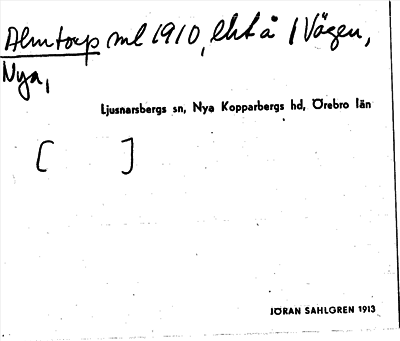 Almtorp ml 1910, eht å 1 Vägen,
Nya,
Ljusnarsbergs sn, Nya Kopparbergs hd, Örebro län
[ ]
JÖRAN SAHLGREN 1913